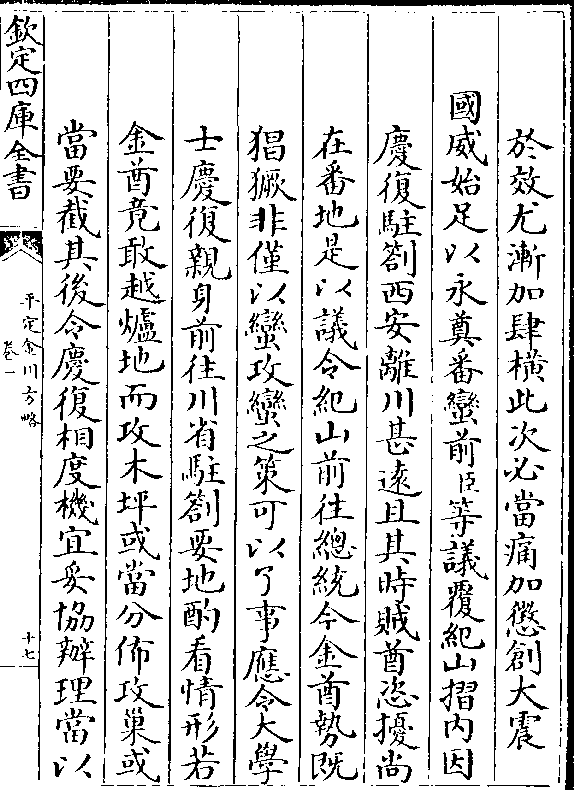 於效尤漸加肆橫此次必當痛加懲創大震
國威始足以永奠番蠻前臣等議覆紀山摺内因
慶復駐劄西安離川甚遠且其時賊酋恣擾尚
在番地是以議令紀山前往總統今金酋勢既
猖獗非僅以蠻攻蠻之策可以了事應令大學
士慶復親身前往川省駐劄要地酌看情形若
金酋竟敢越爐地而攻木坪或當分佈攻巢或
當要截其後令慶復相度機宜妥協辦理當以
欽定四庫全書
平定金川方略
卷一
十七